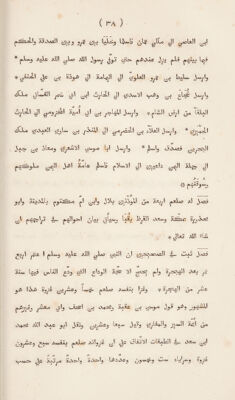 ( ٣٨ )
ابى العاصى الى ملكى عمان فاسلما وخليا بين عمرو وبين الصدقة والحكم
فيما بينهم فلم يزل عندهم حتى توفى رسول الله صلى الله عليه وسلم *
وارسل سليط بن عمرو العلوى الى اليمامة الى هوذة بن على الحنفى *
وارسل شجاع بن وهب الاسدى الى الحارث ابن ابى شمر الغسانى ملك
البلقا من ارض الشام * وارسل المهاجر بن ابى أمية المخزومى الى الحارث
الحميرى * وارسل العلاء بن الحضرمى الى المنذر بن ساوى العبدى ملك
البحرين فصدق واسلم * وارسل ابا موسى الاشعرى ومعاذ بن جبل
الى جملة اليمن داعين الى الاسلام فاسلم عامة اهل اليمن ملوكهم
وسوقتهم
فصل له صلعم اربعة من المؤذنين بلال وابن ام مكتوم بالمدينة وابو
محذورة بمكة وسعد القرظ بقبا وسياتى بيان احوالهم فى تراجمهم ان
شاء الله تعالى *
فصل ثبت فى الصحيحين ان النبى صلى الله عليه وسلم اعتمر اربع
بعد الهجرة ولم يحج الا حجة الوداع التى ودع الناس فيها سنة
عشر من الهجرة * وغزا بنفسه صلعم خمسا وعشرين غزوة هذا هو
المشهور وهو قول موسى بن عقبة ومحمد بن اسحق وابى معشر وغيرهم
من ائمة السير والمغازى وقيل سبعا وعشرين ونقل ابو عبد الله محمد
ابن سعد فى الطبقات الاتفاق على ان غزواته صلعم بنفسه سبع وعشرون
غزوة وسراياه ست وخمسون وعددها واحدة واحدة مرتبة على حسب